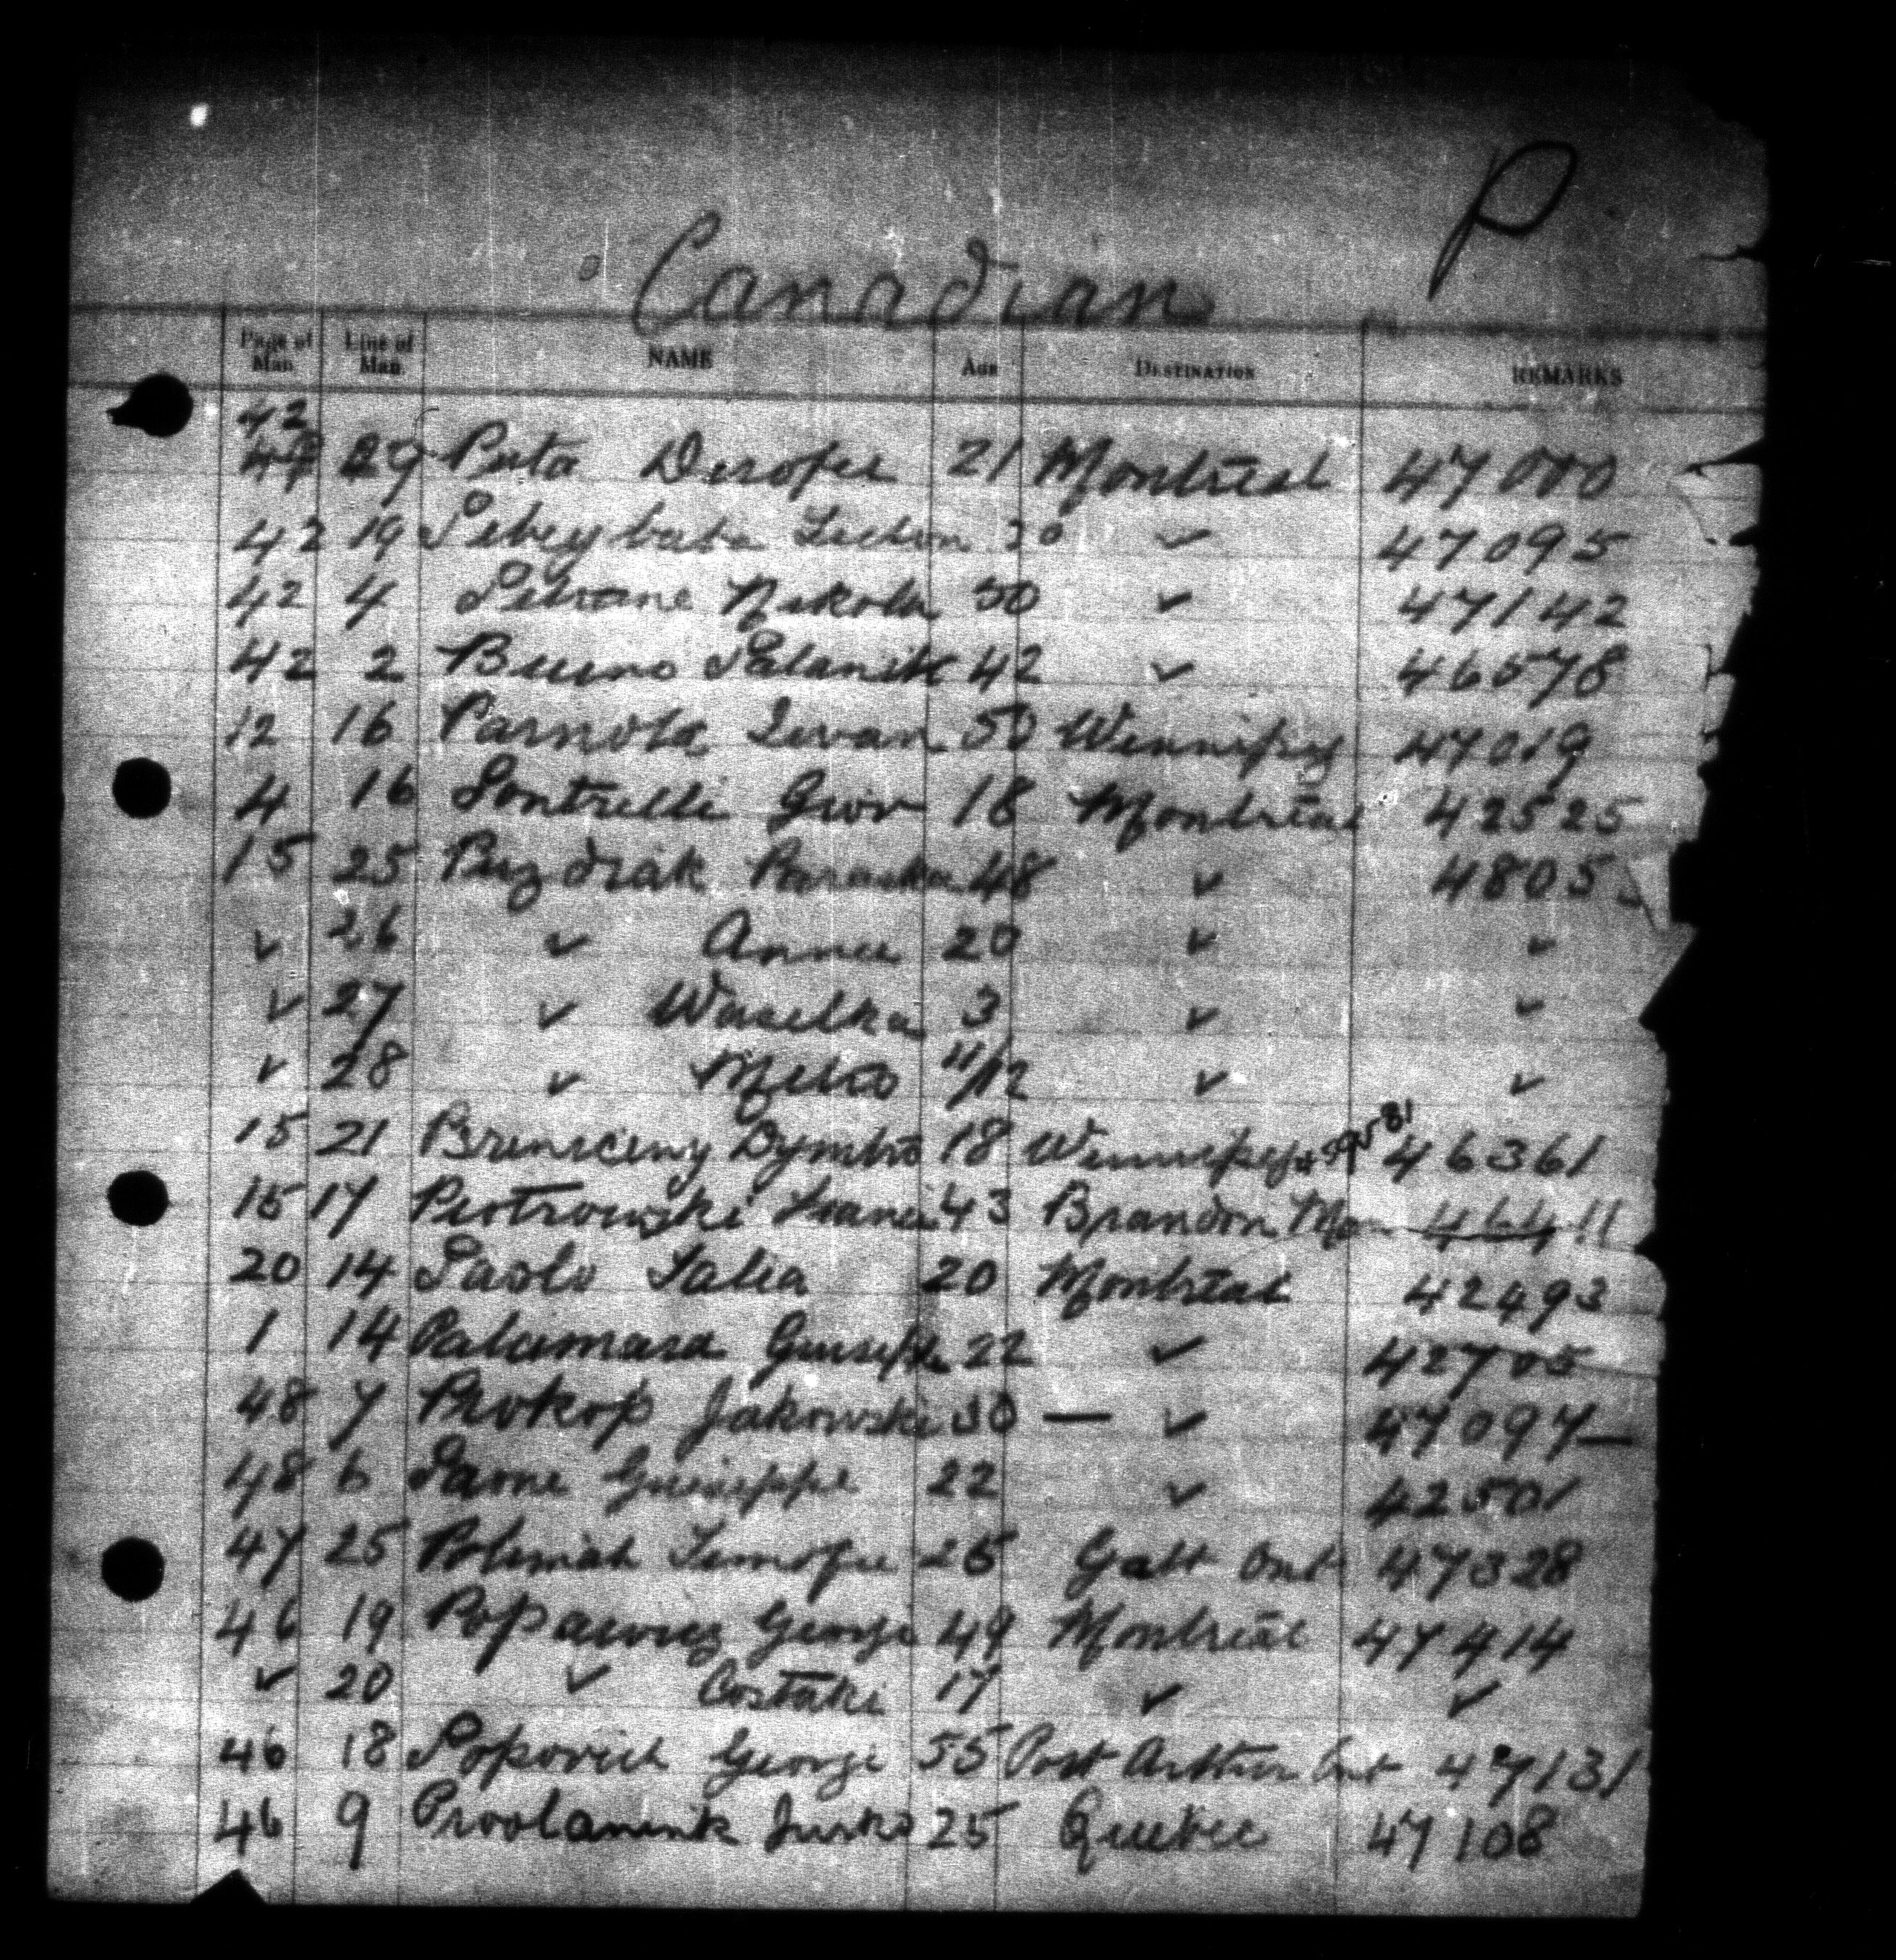 P
Canadian
Page of Man. Line of Man. NAME AGE DESTINATION REMARKS
42
27 Puta 21 Montreal 47000
42 19 47095
42 4 Nikola 50 ✓ 47142
42 2 Bueno Palanik 42 ✓ 46578
12 16 Parnola Iwan 50 Winnipeg 47019
4 16 Pontrelli Giov 18 Montreal 42525
15 25 Paraska 48 ✓ 4805
✓ 26 ✓ Anna 20 ✓ ✓
✓ 27 ✓ Waselka 3 ✓ ✓
✓ 28 ✓ 11/12 ✓ ✓
15 21 Dymtro 18 Winnipeg 46361
15 17 Piotrowski 43 Brandon Man 46411
20 14 Paolo Talia 20 Montreal 42493
1 14 Palamara Giuseppe 22 ✓ 42705
48 7 Prokop Jakowski 30 — ✓ 47097—
48 6 Paone Giuseppe 22 ✓ 42501
47 25 Timofie 25 Galt Ont 47328
46 19 George 49 Montreal 47414
✓ 20 ✓ Costaki 17 ✓ ✓
46 18 Popovich George 55 Port Arthur Ont 47131
46 9 Jurko 25 Quebec 47108